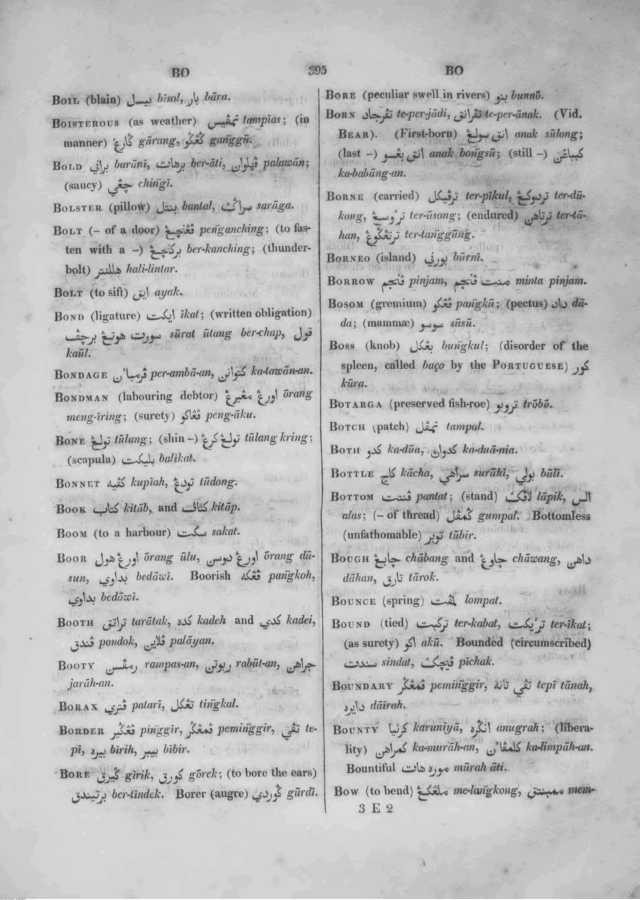 BO 395 BO
BOIL (blain) بيسل bīsol, بار bāra.
BOISTEROUS (as weather) تمڤيس tampias; (in
manner) gārang, ڬڠݢو gaṅggū.
BOLD براني barānī, برهات ber-āti, ڤهلوان palawān;
(saucy) چڠي chiṅgī.
BOLSTER (pillow) بنتل bantal, سراݢ sarāga.
BOLT (– of a door) ڤڠنچيڠ peṅganching; (to fas-
ten with a –) برکنچيڠ ber-kanching; (thunder-
bolt) هللنتر hali-lintar.
BOLT (to sift) ايق ayak.
BOND (ligature) ايکت īkat; (written obligation)
سورت هوتڠ برچڤ sūrat ūtang ber-chap, قول
kaūl.
BONDAGE per-ambā-an, کتوانن ka-tawān-an.
BONDMAN (labouring debtor) اورڠ مڠيرڠ ōrang
meng-īring; (surety) ڤڠاکو peng-āku.
BONE تولڠ tūlang; (shin –) تولڠ کرڠ tūlang kring;
(scapula) بليکت balikat.
BONNET کڤيه kupīah, تودڠ tūdong.
BOOK کتاب kitāb, and کتاڤ kitāp.
BOOM (to a harbour) سکت sakat.
BOOR اورڠ هول ōrang ūlu, اورڠ دوسن ōrang dū-
sun, بداوي bedāwī. Boorish ڤڠکه paṅgkoh,
بداوي bedāwī.
BOOTH تراتق tarātak, کده kadeh and کدي kadei,
ڤندق pondok, ڤلاين palāyan.
BOOTY رمڤسن rampas-an, ربوتن rabūt-an, جراهن
jarāh-an.
BORAX ڤتري patarī, تڠکل tiṅgkal.
BORDER ڤڠݢير piṅggir, ڤمڠݢير pemiṅggir, تڤي te-
pī, بيره bīrih, بيبر bībir.
BORE ݢيرق gīrik, ݢورق gōrek; (to bore the ears)
برتيندق ber-tīndek. Borer (augre) ݢوردي gūrdī.
BORE (peculiar swell in rivers) بنو bunnō.
BORN ترجاد te-per-jādi, تڤرانق te-per-ānak. (Vid.
BEAR). (First-born) انق سولڠ anak sūlong;
(last –) انق بڠسو anak boṅgsū; (still –) کبباڠن
ka-babāng-an.
BORNE (carried) ترڤيکل ter-pīkul, تردوکڠ ter-dū-
kong, تروسڠ ter-ūsong; (endured) ترتاهن ter-tā-
han, ترتڠݢوڠ ter-taṅggūng.
BORNEO (island) بورني būrnī.
BORROW ڤنجم pinjam, منت ڤنجم minta pinjam.
BOSOM (gremium) ڤڠکو paṅgkū; (pectus) داد dā-
da; (mammæ) سوسو sūsū.
BOSS (knob) بڠکل buṅgkul; (disorder of the
spleen, called baço by the PORTUGUESE) کور
kūra.
BOTARGA (preserved fish-roe) تروبو trōbū.
BOTCH (patch) تمڤل tampal.
BOTH کدو ka-dūa, کدوان ka-duā-nia.
BOTTLE کاچ kācha, سراهي surāhī, بولي būlī.
BOTTOM ڤنتت pantat; (stand) لاڤق lāpik, الس
alas; (– of thread) ݢمڤل gumpal. Bottomless
(unfathomable) توبر tūbir.
BOUGH چابڠ chābang and چاوڠ chāwang, داهن
dāhan, تارق tārok.
BOUNCE (spring) لمڤت lompat.
BOUND (tied) ترکبت ter-kabat, ترايکت ter-īkat;
(as surety) اکو akū. Bounded (circumscribed)
سندت sindat, ڤيچق pīchak.
BOUNDARY ڤمڠݢير pemiṅggir, تڤي تانه tepī tānah,
دايره dāirah.
BOUNTY کرنيا karunīyā, انݢره anugrah; (libera-
lity) کمراهن ka-murāh-an, کلمڤاهن ka-limpāh-an.
Bountiful موره هات mūrah āti.
BOW (to bend) ملڠکڠ me-laṅgkong, ممبنتق mem-
3 E 2